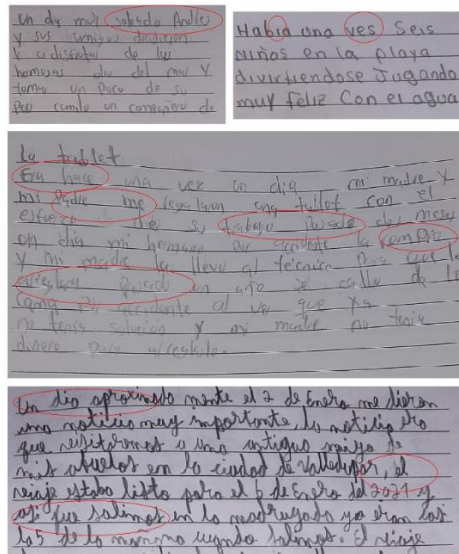 Un dia muy soleado Andres
Y sus amigos decidieron
Y a disfrutar de las
hermosas del mar Y
tomar un poco de su
Había una ves Seis
niños en la playa
divirtiendose Jugando
muy Feliz Con el agua
La tablet
Era hace una vez un dia mi madre Y
mi Padre me regalaron una tablet con el
esfuerzo de su trabajo Pasado dos meses
un dia mi hermano Por accidente la
Y mi madre la llevo al técnico Para que la
Pasado un año se callo de la
cama Por accidente al ver que ya
no tenia solucion Y mi madre no tenia
dinero Para arreglarlo.
Un dia aproximado mente el 2 de Enero me dieron
una noticia muy importante, la noticia era
que visitaremos a una antigua amiga de
mis abuelos en la ciudad de Valledupar, el
viaje estaba listo para el 6 de Enero del 2021 y
asi fue salimos en la madrugada ya eran las
las 5 de la mañana cuando salimos. El viaje